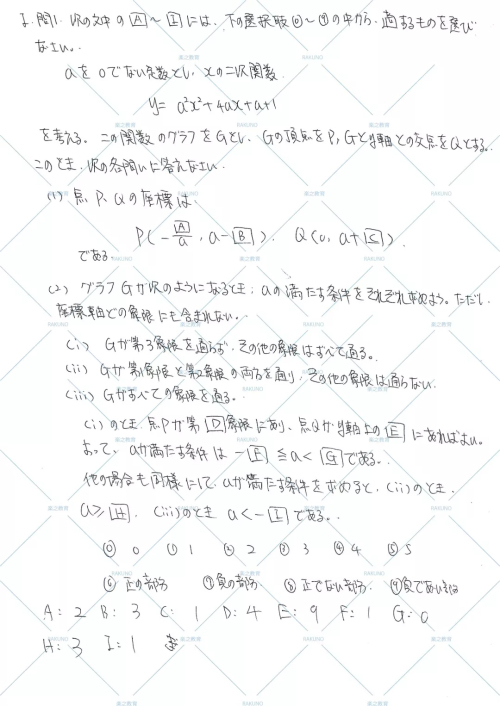 I. 問1. 次の文中の A ~ I には、下の選択肢 ⓪ ~ ⑨ の中から、適するものを選び
なさい。
aを0でない定数とし, xの二次関数
y= a²x²+4ax+a+1
を考える。この関数のグラフをGとし、Gの頂点をP, Gとy軸との交点をQとする。
このとき、次の各問いに答えなさい。
(1) 点 P, Qの座標は
P(- A/a , a- B ), Q(0, a+ C ),
である。
(2) グラフGが次のようになるとき, aの満たす条件をそれぞれ求めよう。ただし、
座標軸上はどの象限にも含まれない。
(i) Gが第3象限を通らず, その他の象限はすべて通る。
(ii) Gが第1象限と第2象限の両方を通り, その他の象限は通らない。
(iii) Gがすべての象限を通る。
(i)のとき, 点Pが第 D 象限にあり, 点Qがy軸上の E にあればよい。
よって、aが満たす条件は - F ≦a< G である。
他の場合も同様にして, aが満たす条件を求めると, (ii)のとき
a≧ H , (iii)のとき a<- I である。
⓪ 0 ① 1 ② 2 ③ 3 ④ 4 ⑤ 5
⑥ 正の部分 ⑦ 負の部分 ⑧ 正でない部分 ⑨ 負でない部分
A: 2 B: 3 C: 1 D: 4 E: 9 F: 1 G: 0
H: 3 I: 1